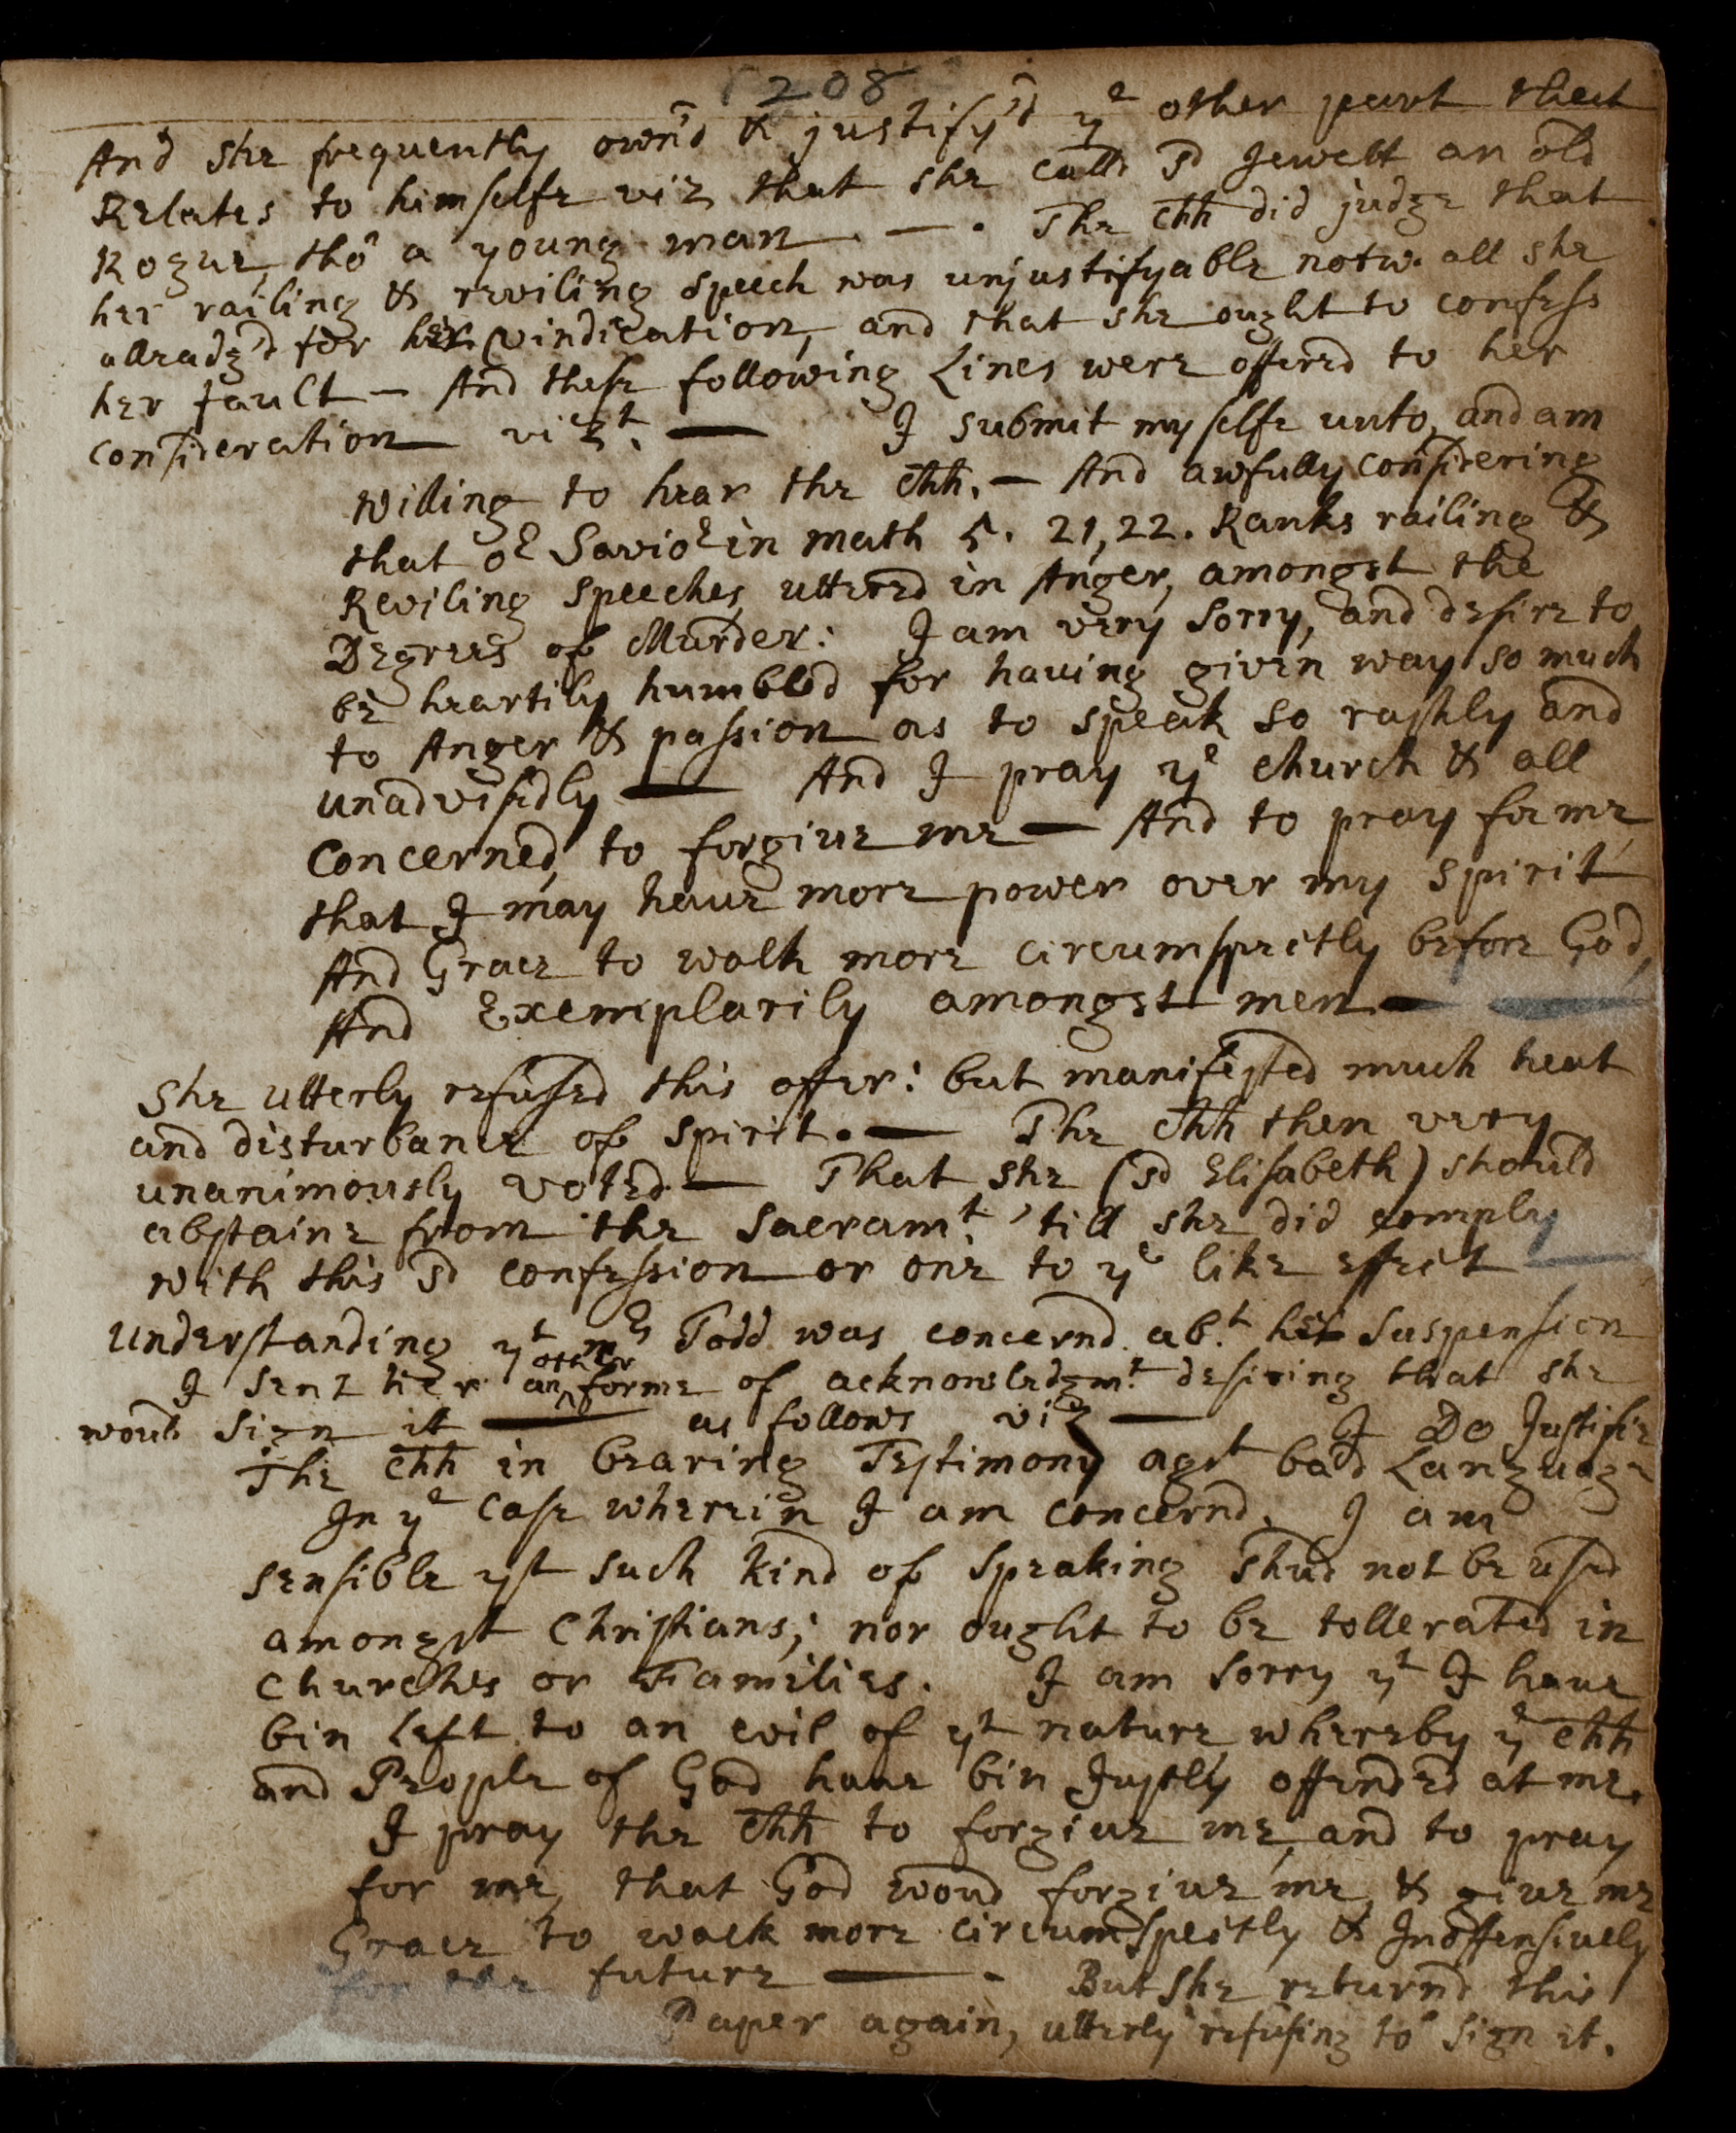 208
And she frequently own'd & justify'd ye other part that
Relates to himselfe viz that she calld sd Jewett an old
Rogue, tho a young man —. The Chh did judge that
her railing & reviling speech was unjustifyable notw. all she
alleadg'd for her vindication, and that she ought to confess
her fault — And these following Lines were offered to her
consideration vizt. — I submit my selfe unto, and am
willing to hear the Chh. — And awfully considering
that or Savior in math 5. 21, 22. Ranks railing &
Reviling speeches, uttered in Anger, amongst the
Degrees of Murder: I am very sorry, and desire to
be heartily humbled for having given way so much
to Anger & passion as to speak so rashly and
unadvisedly — And I pray ye Church & all
Concerned, to forgive me — And to pray for me,
that I may have more power over my spirit
And Grace to walk more circumspectly before God,
And Exemplarily amongst men —
She utterly refused this offer: but manifested much heat
and disturbance of spirit. — The Chh then very
unanimously voted — That she (sd Elisabeth) should
abstaine from the Sacramt. 'till she did comply
with this sd confession or one to ye like effect —
Understanding yt mrs Todd was concernd abt. her Suspension
I sent her an other forme of acknowledgmt. desiring that she
would sign it — as follows viz — I Do Justifie
The Chh in bearing Testimony agst bad Language
In ye Case wherein I am concernd. I am
sensible yt such kind of speaking shud not be used
amongst Christians; nor ought to be tollerated in
Churches or Families. I am sorry yt I have
bin left to an evil of yt nature whereby ye Chh
and People of God have bin Justly offended at me.
I pray the Chh to forgive me, and to pray
for me, that God woud forgive me, & give me
Grace to walk more circumspectly & Inoffensively
for the future —. But she returnd this
Paper again, utterly refusing to sign it.